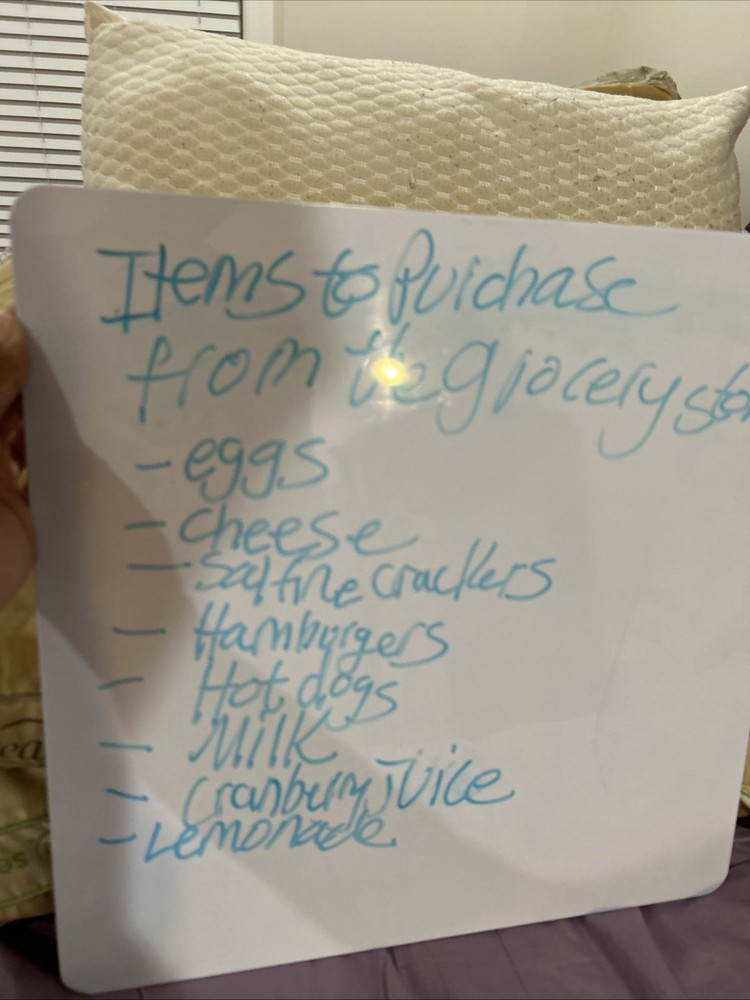 Items to Purchase
from the grocery sto
- eggs
- cheese
- Saltine crackers
- Hamburgers
- Hot dogs
- Milk
- Cranbury juice
- Lemonade